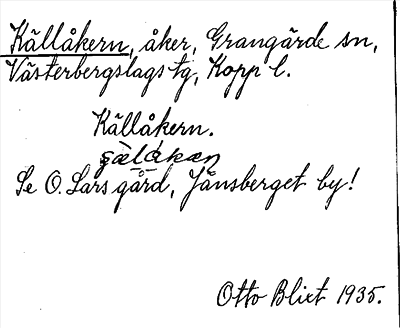 Källåkern, åker, Grangärde sn,
Västerbergslags tg, Kopp l.
Källåkern.
Se O. Lars gård, Jänsberget by!
Otto Blixt 1935.